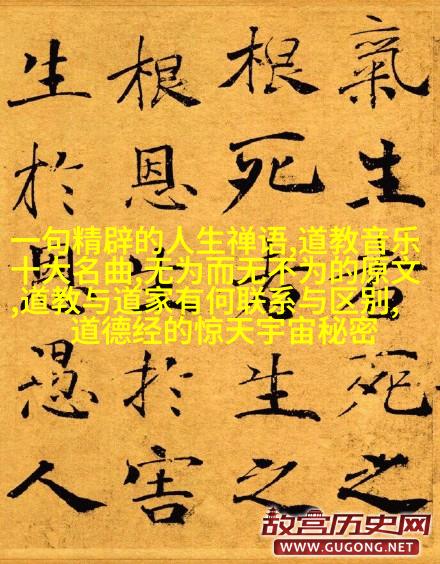 氣生者死之
根死者生之
根恩生於害
生於恩愚人
一句精辟的人生禅语,道教音乐
十大名曲,无为而无不为的原文
,道教与道家有何联系与区别,
道德经的惊天宇宙秘密
故宫历史网
WWW.GUGONG.NET